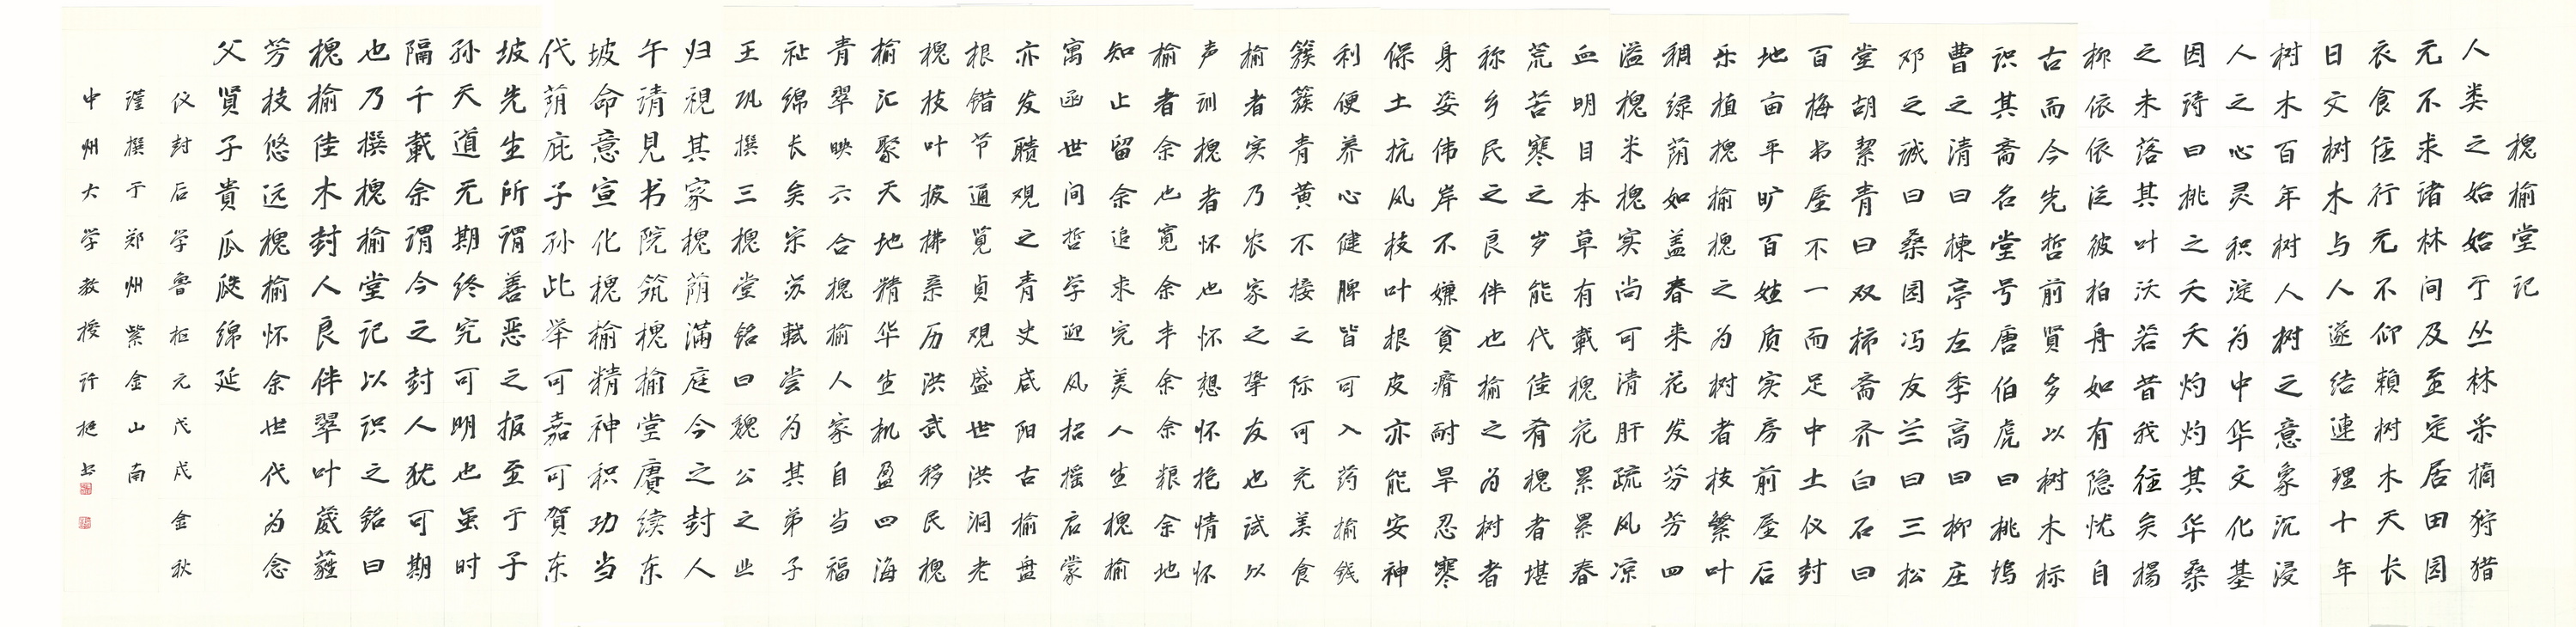 槐榆堂记
人类之始始于丛林采摘狩猎
无不求诸林间及至定居田园
衣食住行无不仰赖树木天长
日久树木与人遂结連理十年
树木百年树人树之意象沉浸
人之心灵积淀为中华文化基
因诗曰桃之夭夭灼灼其华桑
之未落其叶沃若昔我往矣揚
柳依依泛彼柏舟如有隐忧自
古而今先哲前賢多以树木标
识其斋名堂号唐伯虎曰桃坞
曹之清曰楝亭左季高曰柳庄
邓之诚曰桑园冯友兰曰三松
堂胡絜青曰双柿斋齐白石曰
百梅书屋不一而足中土仪封
地亩平旷百姓质实房前屋后
乐植槐榆槐之为树者枝繁叶
稠绿荫如盖春来花发芬芳四
溢槐米槐实尚可清肝疏风凉
血明目本草有載槐花累累春
荒苦寒之岁能代佳肴槐者堪
称乡民之良伴也榆之为树者
身姿伟岸不嫌貧瘠耐旱忍寒
保土抗风枝叶根皮亦能安神
利便养心健脾皆可入药榆钱
簇簇青黄不接之际可充美食
榆者实乃农家之挚友也试以
声训槐者怀也怀想怀抱情怀
榆者余也宽余丰余余粮余地
知止留余追求完美人生槐榆
寓函世间哲学迎风招摇启蒙
亦发聩观之青史咸阳古榆盘
根错节通览貞观盛世洪洞老
槐枝叶披拂亲历洪武移民槐
榆汇聚天地精华生机盈四海
青翠映六合槐榆人家自当福
祉绵长矣宋苏軾尝为其弟子
王巩撰三槐堂铭曰魏公之业
归視其家槐荫满庭今之封人
午请見书院筑槐榆堂賡续东
坡命意宣化槐榆精神积功当
代荫庇子孙此举可嘉可賀东
坡先生所谓善恶之报至于子
孙天道无期终究可明也虽时
隔千載余谓今之封人犹可期
也乃撰槐榆堂记以识之铭曰
槐榆佳木封人良伴翠叶葳蕤
芳枝悠远槐榆怀余世代为念
父賢子貴瓜瓞绵延
仪封后学鲁枢元戊戌金秋
谨撰于郑州紫金山南
中州大学教授许挺书